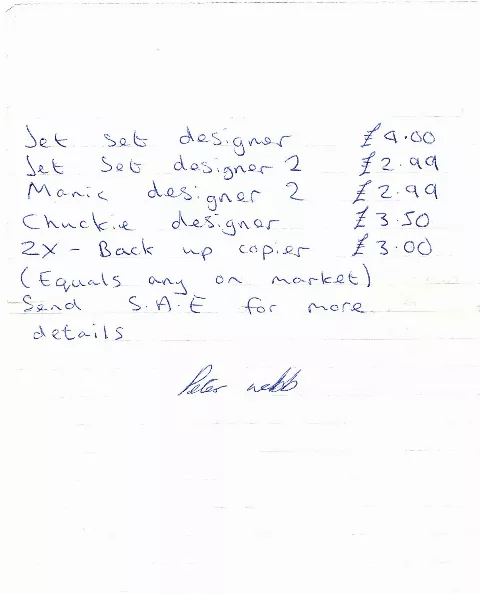 Jet set designer £4.00
Jet Set designer 2 £2.99
Manic designer 2 £2.99
Chuckie designer £3.50
2X - Back up copier £3.00
(Equals any on market)
Send S.A.E for more
details
Peter webb